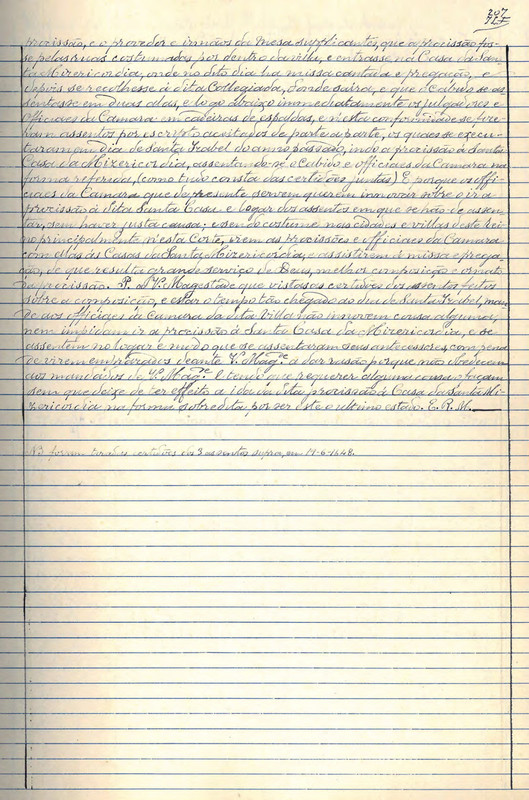 207
procissão, e o provedor e irmãos da Mesa supplicantes, que a procissão fos-
se pelas ruas costumadas por dentro da villa, e entrasse na Casa da San-
ta Misericordia, onde no dito dia ha missa cantada e pregação, e
depois se recolhesse á dita Collegiada, donde saira, e que o Cabido se as-
sentasse em duas alas, e logo abaixo immediatamente os julgadores e
officiaes da Camara em cadeiras de espaldas, e n'esta conformidade se fize-
ram assentos por escripto aceitados de parte a parte, os quaes se execu-
taram em dia de Santa Izabel do anno passado, indo a procissão á Santa
Casa da Misericordia, assentando-se o Cabido e officiaes da Camara na
forma referida, (como tudo consta das certidões juntas) E porque os offi-
ciaes da Camara que de presente servem querem innovar sobre o ir a
procissão á dita Santa Casa e logar dos assentos em que se hão de assen-
tar, sem haver justa causa; e sendo costume nas cidades e villas deste Rei-
no principalmente n'esta Côrte, irem as procissões e officiaes da Camara
com ellas ás Casas da Santa Misericordia, e assistirem á missa e prega-
ção, de que resulta grande serviço de Deus, melhor composição e ornato
da procissão. P. a V. Magestade que vistas as certidões dos assentos feitos
sobre a composição, e estar o tempo tão chegado ao dia de Santa Izabel, man-
de aos officiaes da Camara da dita Villa não innovem cousa alguma,
nem impidam ir a procissão á Santa Casa da Misericordia, e se
assentem no logar e modo que se assentaram seus antecessores, com pena
de virem emprazados deante V. Mag.e a dar rasão porque não obedecem
aos mandados de V. Mag.e E tendo que requerer alguma cousa o façam
sem que deixe de ter effeito a ida da dita procissão á Casa da Santa Mi-
zericordia na forma sobredita, por ser este o ultimo estado. E. R. M.
foram tiradas certidões dos 3 assentos supra, em 17-6-1648.